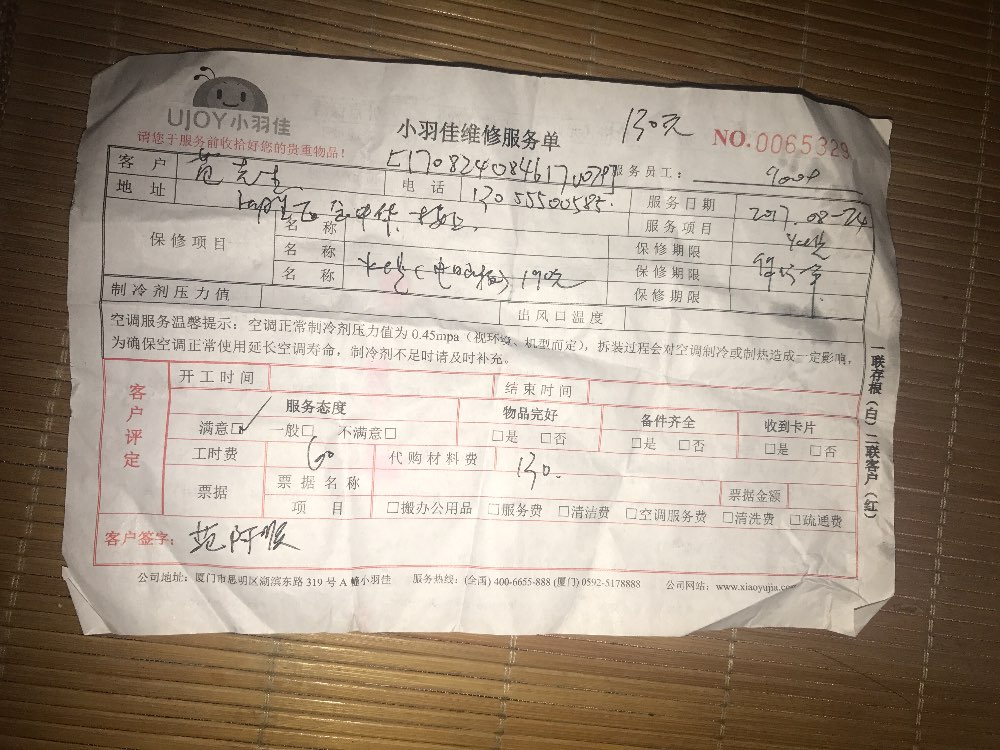 UJOY小羽佳
小羽佳维修服务单
130元
NO.0065329
请您于服务前收拾好您的贵重物品！
服务员工：
客户 范先生
电话 13055500585
服务日期 2017.08-24
地址
服务项目
保修项目
名称
保修期限
名称
保修期限
名称
保修期限
制冷剂压力值
出风口温度
空调服务温馨提示：空调正常制冷剂压力值为 0.45mpa（视环境、机型而定），拆装过程会对空调制冷或制热造成一定影响，
为确保空调正常使用延长空调寿命，制冷剂不足时请及时补充。
客户评定
开工时间
结束时间
服务态度
物品完好
备件齐全
收到卡片
满意☑ 一般□ 不满意□
□是 □否
□是 □否
□是 □否
工时费 60
代购材料费 130.
票据
票据名称
票据金额
项目
□搬办公用品 □服务费 □清洁费 □空调服务费 □清洗费 □疏通费
客户签字：
一联存根（白）二联客户（红）
公司地址：厦门市思明区湖滨东路 319 号 A 幢小羽佳 服务热线：(全国) 400-6655-888 (厦门) 0592-5178888 公司网站：www.xiaoyujia.co